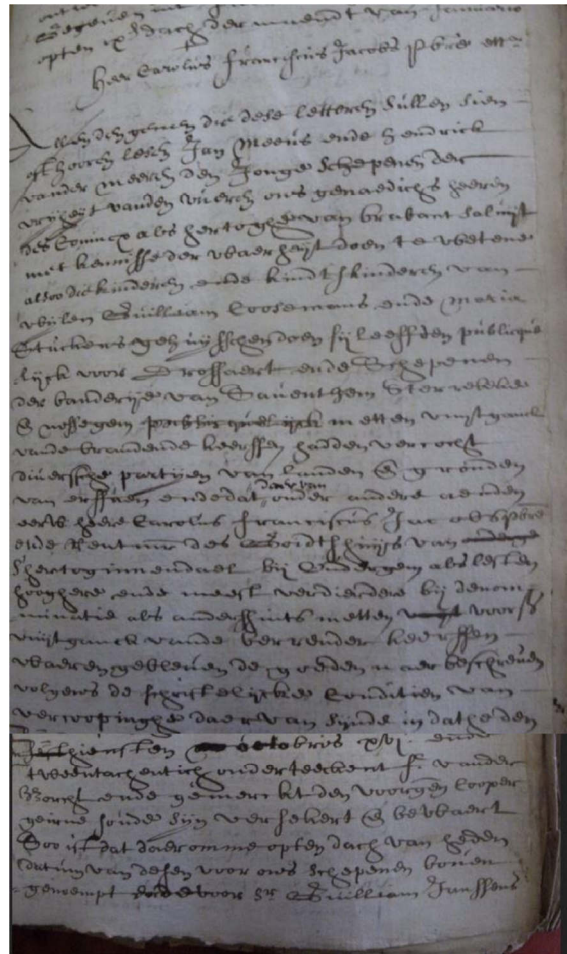 Gegeven
opten ix dach der maendt van Januario
Heer Carolus Franciscus Jacobs pbre ett
Allen den genen die dese letteren sullen sien
oft hooren lesen Jan Meeus ende Hendrick
vander Meeren den Jonge Schepenen der
vryheyt vanden vueren ons genaedichs heeren
des Connincx als hertoghe van brabant saluyt
met kennisse der waerheyt doen te wetene
alsoo die kinderen ende kindtskinderen van
wylen Guilliam Loosemans ende Maria
Stuckens gehuysschen doen sy leeffden publicque
lyck voor Drossaert ende Schepenen
der banderye van Saventhem Sterrebeke
& nossegem metten uuytganck
vande brandende keerssen hadden vercocht
diversche partyen van landen & gronden
van erffven ende dat daer van onder andere aenden
eerw heere Carolus Franciscus Jacobs pbre
ende Rentmr des Godtshuys van
S'hertoginnendael by als lesten
hooghsten ende meest verdierdere by denomi
minatie als anderssints metten voors
uuytganck vande berrender keerssen
waeren gebleven de goeden naer beschreven
volgens de schriftelycke Conditien van
vercoopinghe daer van synde in dathe den
thiensten octobris xvj ende
tweentachentich onderteeckent F. vander
Borcht ende gemerckt den voorgen cooper
geirne soude syn versekert & bewaert
Soo ist dat daeromme opten dach van heden
datum van desen voor ons schepenen boven
genoempt voor Sr Guilliam Janssens